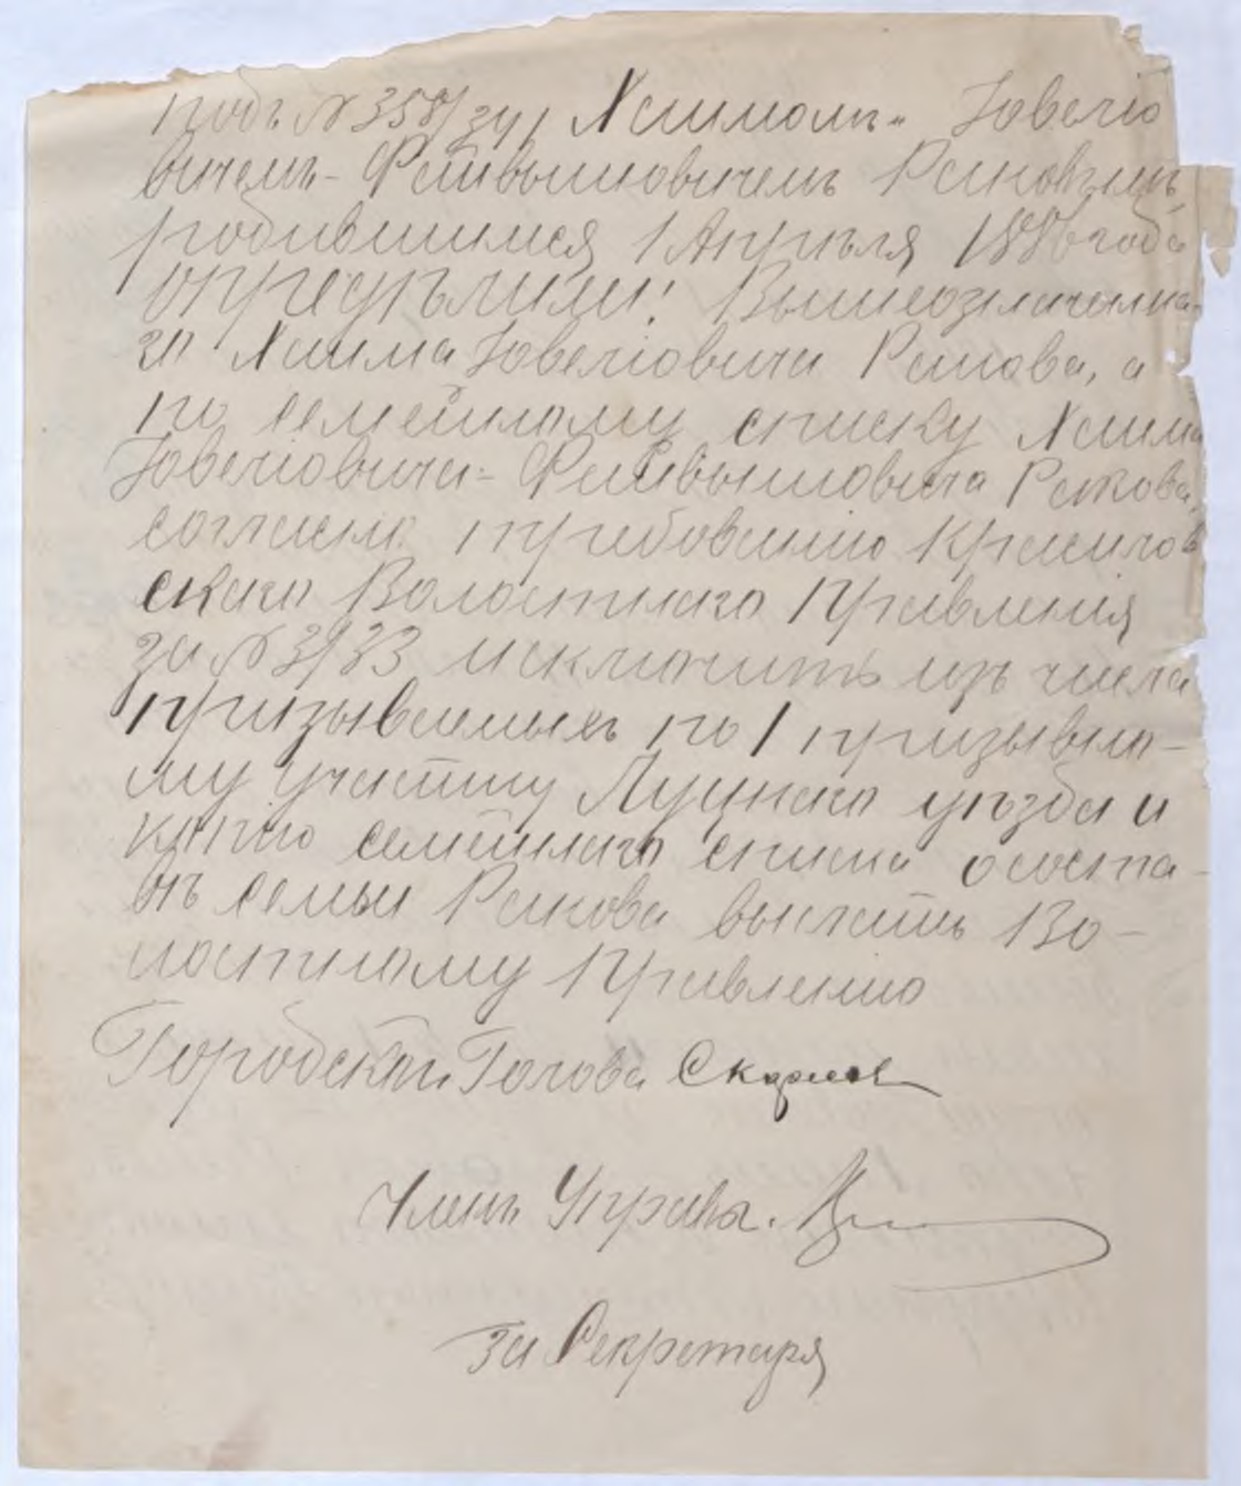 подъ № 358/34, Хаимомъ Іовеліо
вичемъ-Файвышовичемъ Раковымъ,
родившимся 1 Апрѣля 1886 года
опредѣлили: Вышеозначенна-
го Хаима Іовеліовича Ракова, а
по семейному списку Хаима
Іовеліовича-Файвышовича Ракова,
согласно требованію
скаго Волостнаго Правленія
за № 3933 исключить изъ числа
призываемыхъ по 1 призывно-
му участку Луцнаго уѣзда и
копію семейнаго списка о соста-
вѣ семьи Ракова выслать Во-
лостному Правленію
Городской Голова
Членъ Управы
За Секретаря